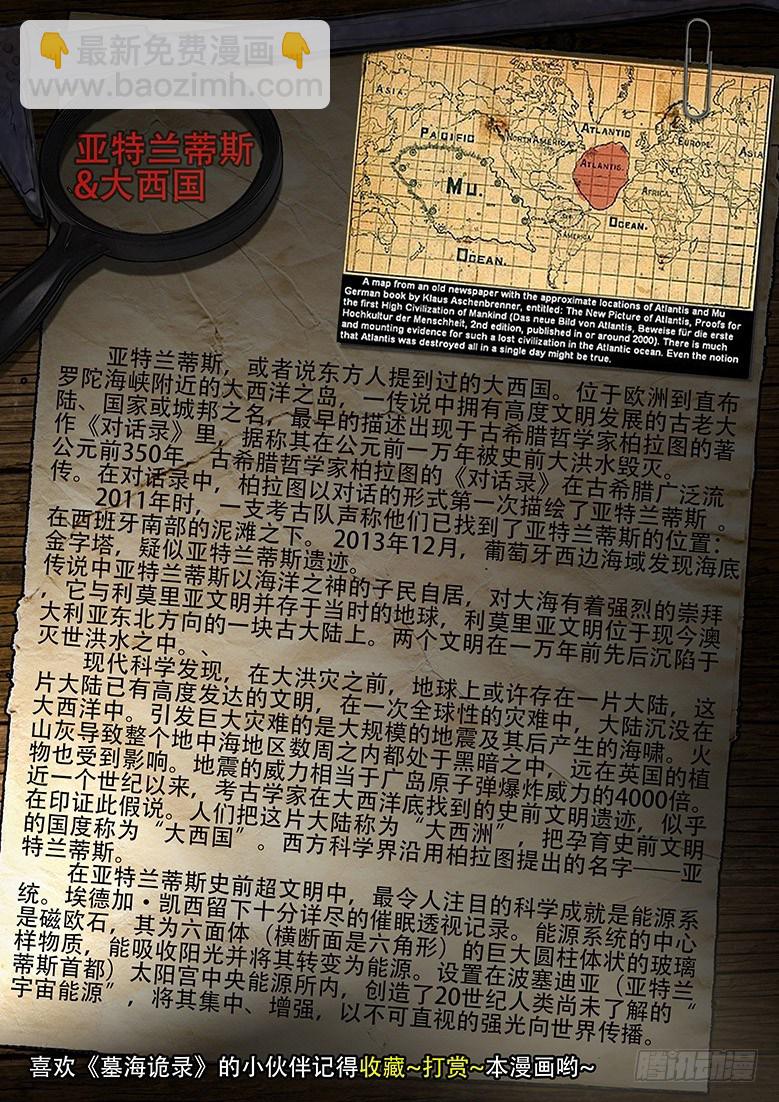 👇最新免费漫画👇
www.baozimh.com
亚特兰蒂斯
&大西国
ASIA.
PACIFIC
NORTH AMERICA
ATLANTIC
EUROPE.
ASIA
MU.
ATLANTIS.
AFRICA.
S AMERICA
OCEAN.
OCEAN.
A map from an old newspaper with the approximate locations of Atlantis and Mu
German book by Klaus Aschenbrenner, entitled: The New Picture of Atlantis, Proofs for
the first High Civilization of Mankind (Das neue Bild von Atlantis, Beweise für die erste
Hochkultur der Menschheit, 2nd edition, published in or around 2000). There is much
and mounting evidence for such a lost civilization in the Atlantic ocean. Even the notion
that Atlantis was destroyed all in a single day might be true.
亚特兰蒂斯，或者说东方人提到过的大西国。位于欧洲到直布
罗陀海峡附近的大西洋之岛，一传说中拥有高度文明发展的古老大
陆、国家或城邦之名，最早的描述出现于古希腊哲学家柏拉图的著
作《对话录》里，据称其在公元前一万年被史前大洪水毁灭。
公元前350年，古希腊哲学家柏拉图的《对话录》在古希腊广泛流
传。在对话录中，柏拉图以对话的形式第一次描绘了亚特兰蒂斯。
2011年时，一支考古队声称他们已找到了亚特兰蒂斯的位置：
在西班牙南部的泥滩之下。2013年12月，葡萄牙西边海域发现海底
金字塔，疑似亚特兰蒂斯遗迹。
传说中亚特兰蒂斯以海洋之神的子民自居，对大海有着强烈的崇拜
，它与利莫里亚文明并存于当时的地球，利莫里亚文明位于现今澳
大利亚东北方向的一块古大陆上。两个文明在一万年前先后沉陷于
灭世洪水之中。、
现代科学发现，在大洪灾之前，地球上或许存在一片大陆，这
片大陆已有高度发达的文明，在一次全球性的灾难中，大陆沉没在
大西洋中。引发巨大灾难的是大规模的地震及其后产生的海啸。火
山灰导致整个地中海地区数周之内都处于黑暗之中，远在英国的植
物也受到影响。地震的威力相当于广岛原子弹爆炸威力的4000倍。
近一个世纪以来，考古学家在大西洋底找到的史前文明遗迹，似乎
在印证此假说。人们把这片大陆称为“大西洲”，把孕育史前文明
的国度称为“大西国”。西方科学界沿用柏拉图提出的名字——亚
特兰蒂斯。
在亚特兰蒂斯史前超文明中，最令人注目的科学成就是能源系
统。埃德加·凯西留下十分详尽的催眠透视记录。能源系统的中心
是磁欧石，其为六面体（横断面是六角形）的巨大圆柱体状的玻璃
样物质，能吸收阳光并将其转变为能源。设置在波塞迪亚（亚特兰
蒂斯首都）太阳宫中央能源所内，创造了20世纪人类尚未了解的“
宇宙能源”，将其集中、增强，以不可直视的强光向世界传播。
喜欢《墓海诡录》的小伙伴记得收藏~打赏~本漫画哟~
腾讯动漫